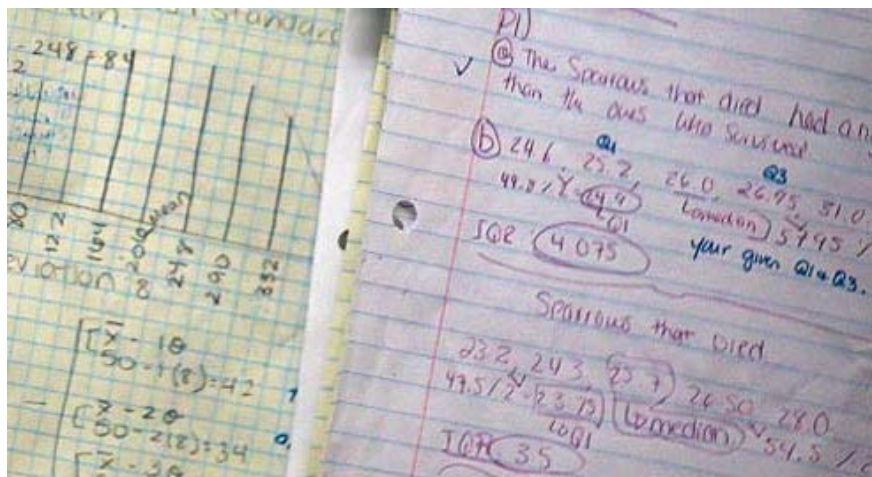 Standard
-248 = 84
2
80
122
164
206
mean
248
290
332
eviation 8
x̄ - 1σ
50 - 1(8) = 42
x̄ - 2σ
50 - 2(8) = 34
P1)
✓ (a) The Sparrows that died had an
than the ones who survived.
Q1 Q3
(b) 24.6, 25.2, 26.0, 26.95, 31.0
49.8 / 2 = 24.9 median 57.95 /
Q1
your given Q1 & Q3.
IQR 4.075
Sparrows that Died
23.2, 24.3, 25.7, 26.50, 28.0
47.5 / 2 = 23.75 median 54.5 /
Q1
IQR 3.5